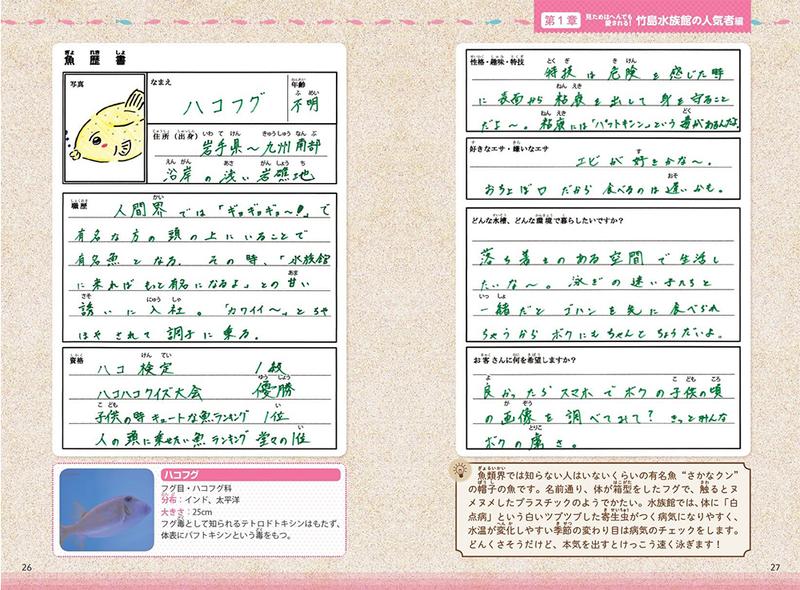 第1章 見ためはへんでも愛される! 竹島水族館の人気者編
魚歴書
写真
なまえ
ハコフグ
年齢
不明
住所(出身)
岩手県〜九州南部
沿岸の浅い岩礁地
職歴
人間界では「ギョギョギョ〜!」で
有名な方の頭の上にいることで
有名魚となる。その時、「水族館
に来ればもっと有名になるよ」との甘い
誘いに入社。「カワイイ〜」とちや
ほやされて調子に乗る。
資格
ハコ検定 1級
ハコハコクイズ大会 優勝
子供の時キュートな魚ランキング 1位
人の頭に乗せたい魚ランキング 堂々の1位
ハコフグ
フグ目・ハコフグ科
分布:インド、太平洋
大きさ:25cm
フグ毒として知られるテトロドトキシンはもたず、
体表にパフトキシンという毒をもつ。
26
性格・趣味・特技
特技は危険を感じた時
に表面から粘液を出して身を守ること
だよ〜。粘液には「パフトキシン」という毒があるんだよ。
好きなエサ・嫌いなエサ
エビが好きかな〜。
おちょぼ口だから食べるのは遅いかも。
どんな水槽、どんな環境で暮らしたいですか?
落ち着きのある空間で生活し
たいな〜。泳ぎの速い子たちと
一緒だとゴハンを先に食べられ
ちゃうからボクにもちゃんとちょうだいよ。
お客さんに何を希望しますか?
良かったらスマホでボクの子供の頃
の画像を調べてみて?きっとみんな
ボクの虜さ。
魚類界では知らない人はいないくらいの有名魚“さかなクン”
の帽子の魚です。名前通り、体が箱型をしたフグで、触るとヌ
メヌメしたプラスチックのようでかたい。水族館では、体に「白
点病」という白いツブツブした寄生虫がつく病気になりやすく、
水温が変化しやすい季節の変わり目は病気のチェックをします。
どんくさそうだけど、本気を出すとけっこう速く泳ぎます!
27